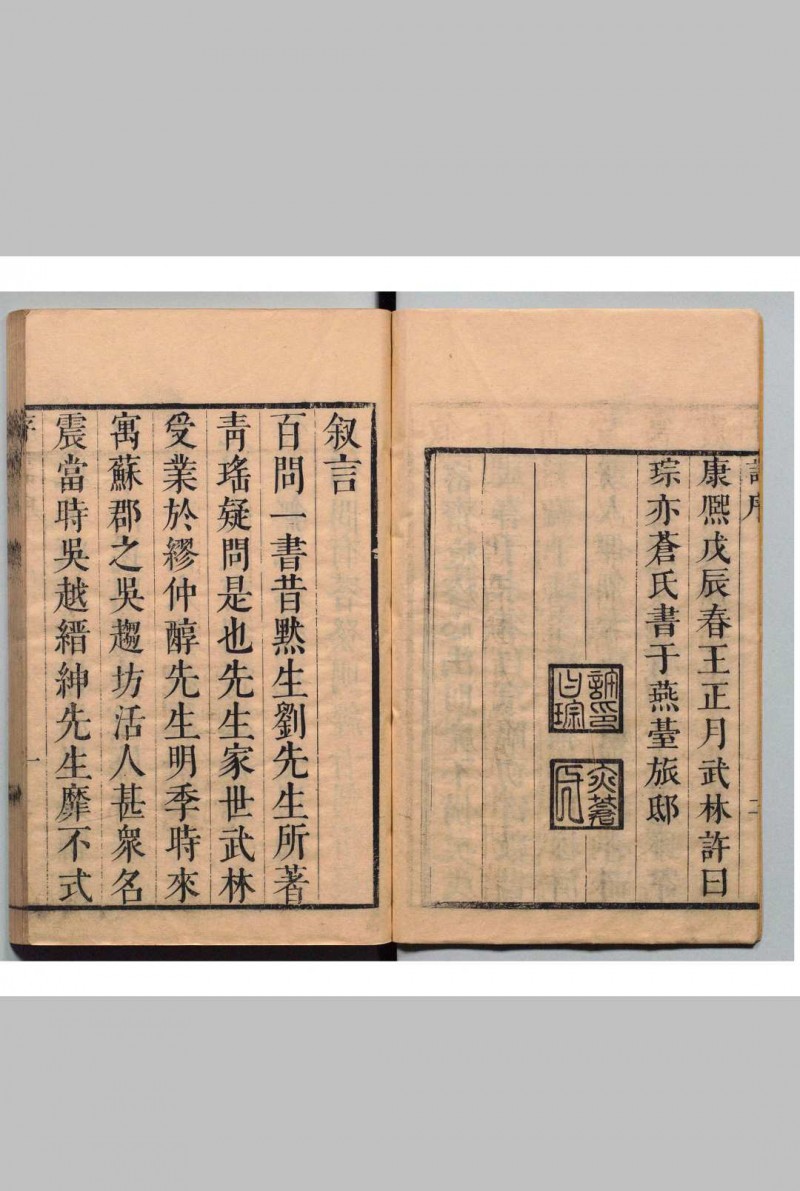 序
二
康熙戊辰春王正月武林許曰
琮亦蒼氏書于燕䑓旅邸
許曰琮印
亦蒼氏
叙言
百問一書昔黙生劉先生所著
青瑤疑問是也先生家世武林
受業於繆仲醇先生明季時來
寓蘇郡之吳趨坊活人甚衆名
震當時吳越縉紳先生靡不式
一